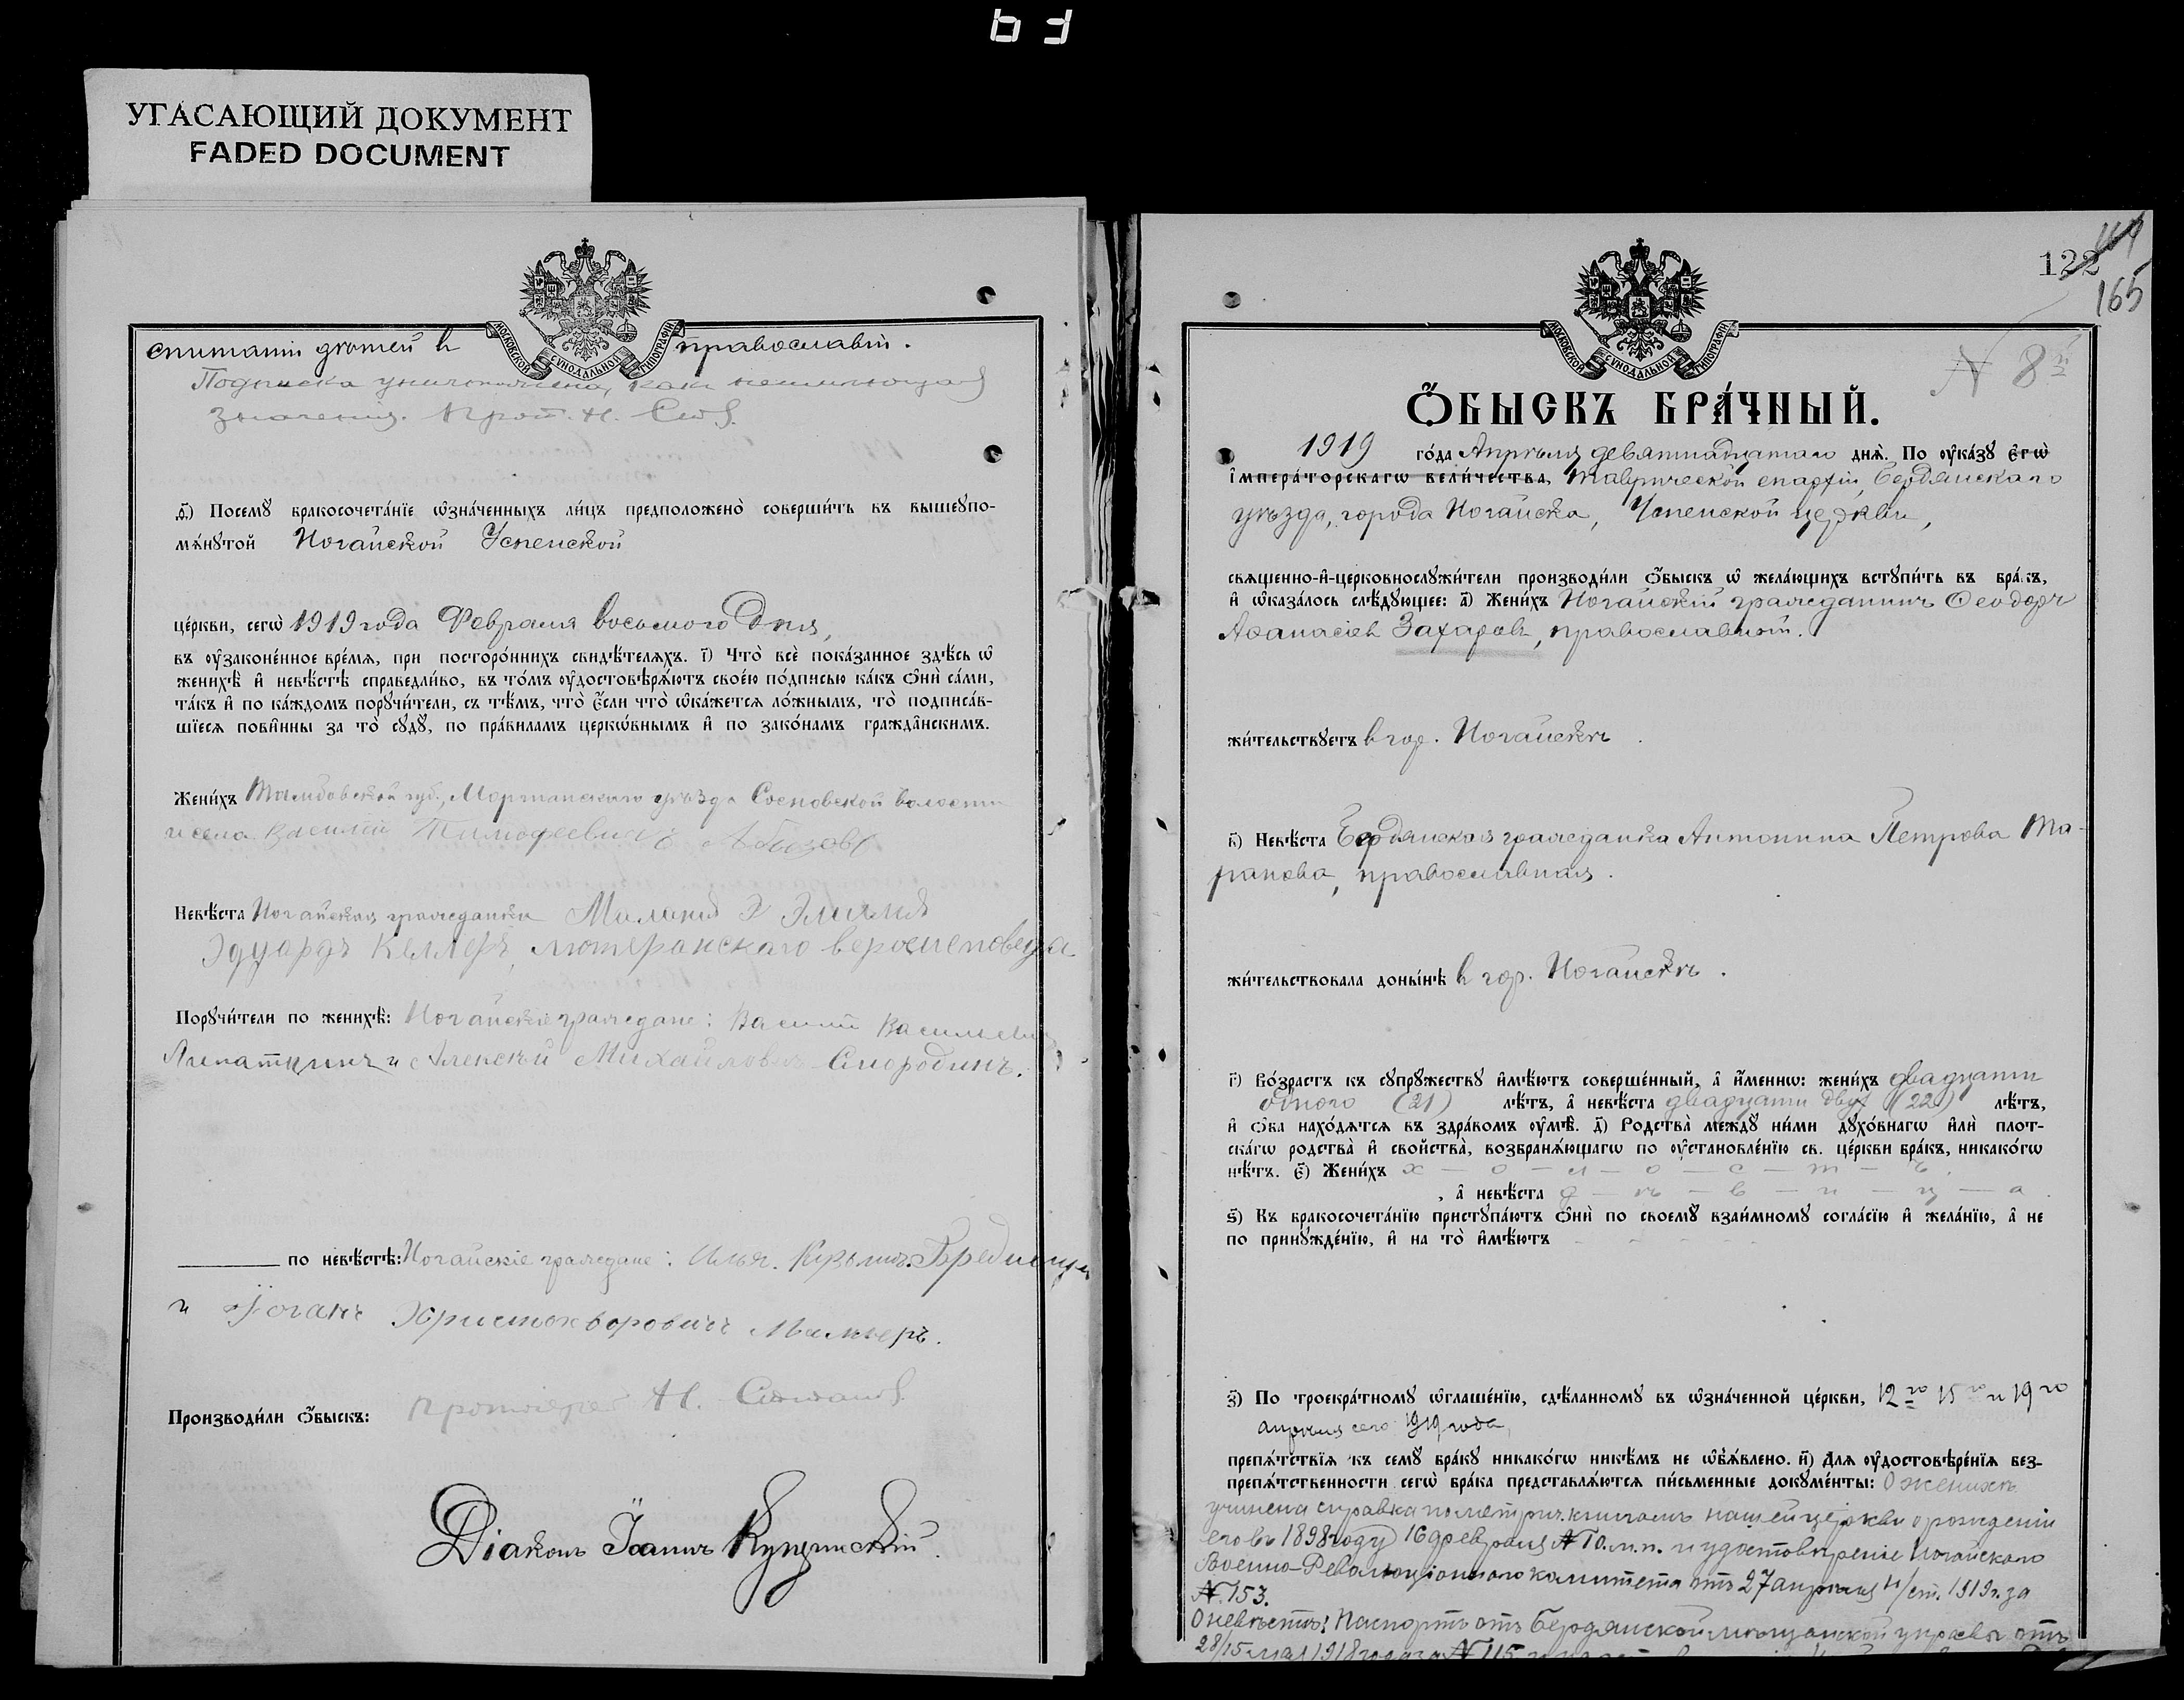 УГАСАЮЩИЙ ДОКУМЕНТ
FADED DOCUMENT
МОСКОВСКОЙ СѴНОДАЛЬНОЙ ТИПОГРАФІИ
спитаніи дѣтей въ православіи.
Подписка уничтожена, какъ неимѣющая
значенія. Прот. Н.
д҃) Посемꙋ бракосочета́нїе ѡ҆зна́ченныхъ ли́цъ предположено̀ соверши́ть въ вышеꙋпо-
мѧ́нꙋтой Ногайской Успенской
це́ркви, сегѡ̀ 1919 года Февраля восьмого дня,
въ ᲂу҆законе́нное вре́мѧ, при посторо́ннихъ свидѣ́телѧхъ. і҃) Что̀ всѐ пока́занное здѣ́сь ѡ҆
женихѣ̀ и҆ невѣ́стѣ справедли́во, въ то́мъ ᲂу҆достовѣрѧ́ютъ свое́ю по́дписью ка́къ ѻ҆нѝ са́ми,
та́къ и҆ по ка́ждомъ порꙋчи́тели, съ тѣ́мъ, что̀ є҆́сли что̀ ѡ҆ка́жетсѧ ло́жнымъ, то̀ подписа́в-
шїесѧ пови́нны за то̀ сꙋдꙋ̀, по пра́виламъ церкѡ́внымъ и҆ по зако́намъ гражда̑нскимъ.
Жени́хъ Тамбовской губ., Моршанскаго уѣзда Сосновской волости
и села Василій Тимофеевичъ Абызовъ
Невѣ́ста Ногайская гражданка Эмилия
Эдуардъ Келлеръ, лютеранскаго вероисповеда
Порꙋчи́тели по женихѣ̀: Ногайскіе граждане: Василий Василиевич
Липаткинъ и Алексѣй Михайловъ Смородинъ.
по невѣ́стѣ: Ногайскіе граждане: Илья Кузьмичъ
и Іоганъ Христофоровичъ
Производи́ли ѻ҆́быскъ: Протоіерей Н.
Діаконъ Іоаннъ
122
165
N 8й
МОСКОВСКОЙ СѴНОДАЛЬНОЙ ТИПОГРАФІИ
Ѻ҆́БЫСКЪ БРА́ЧНЫЙ.
1919 го́да Апрѣля девятнадцатаго днѧ̀. По ᲂу҆ка́зꙋ є҆гѡ̀
і҆мпера́торскагѡ вели́чества, Таврической епархіи, Бердянскаго
уѣзда, города Ногайска, Успенской церкви,
свѧще́нно-и҆-церковнослꙋжи́тели производи́ли ѻ҆́быскъ ѡ҆ жела́ющихъ встꙋпи́ть въ бра́къ,
и҆ ѡ҆каза́лось слѣ́дꙋющее: а҃) Жени́хъ Ногайскій гражданинъ Ѳеодоръ
Аѳанасіевъ Захаровъ, православный.
жи́тельствꙋетъ въ гор. Ногайскѣ
в҃) Невѣ́ста Бердянская гражданка Антонина Петрова Та-
ранова, православная.
жи́тельствовала доны́нѣ въ гор. Ногайскѣ.
г҃) Во́зрастъ къ сꙋпрꙋ́жествꙋ и҆мѣ́ютъ соверше́нный, а҆ и҆́меннѡ: жени́хъ двадцати
одного (21) лѣ́тъ, а҆ невѣ́ста двадцати двухъ (22) лѣ́тъ,
и҆ ѻ҆́ба нахо́дѧтсѧ въ здра́вомъ ᲂу҆мѣ̀. д҃) Родства̀ междꙋ̀ ни́ми дꙋхо́внагѡ и҆лѝ плот-
ска́гѡ родства̀ и҆ свойства̀, возбранѧ́ющагѡ по ᲂу҆становле́нїю св. це́ркви бра́къ, никако́гѡ
нѣ́тъ. є҃) Жени́хъ х — о — л — о — с — т — ъ.
, а҆ невѣ́ста д — ѣ — в — и — ц — а.
ѕ҃) Къ бракосочета́нїю пристꙋпа́ютъ ѻ҆нѝ по своемꙋ̀ взаи́мномꙋ согла́сїю и҆ жела́нїю, а҆ не
по принꙋжде́нїю, и҆ на то̀ и҆мѣ́ютъ - - - - -
з҃) По троекра́тномꙋ ѡ҆глаше́нїю, сдѣ́ланномꙋ въ ѡ҆зна́ченной це́ркви, 12го 15го и 19го
апрѣля сего 1919 года,
препѧ́тствїѧ къ семꙋ̀ бра́кꙋ никако́гѡ никѣ́мъ не ѡ҆б̾ѧ́влено. и҃) Длѧ ᲂу҆достовѣре́нїѧ без-
препѧ́тственности сегѡ̀ бра́ка представлѧ́ютсѧ пи́сьменные докꙋме́нты: О женихѣ
учинена справка по метрич. книгамъ нашей церкви о рожденіи
его въ 1898 году 16 февраля № 10 м.п. и удостовѣреніе Ногайскаго
Военно-Революціоннаго комитета отъ 27 апрѣля н/ст. 1919 г. за
№ 153.
О невѣстѣ: Паспортъ отъ Бердянской мѣщанской управы отъ
28/15 мая 1918 года за № 115